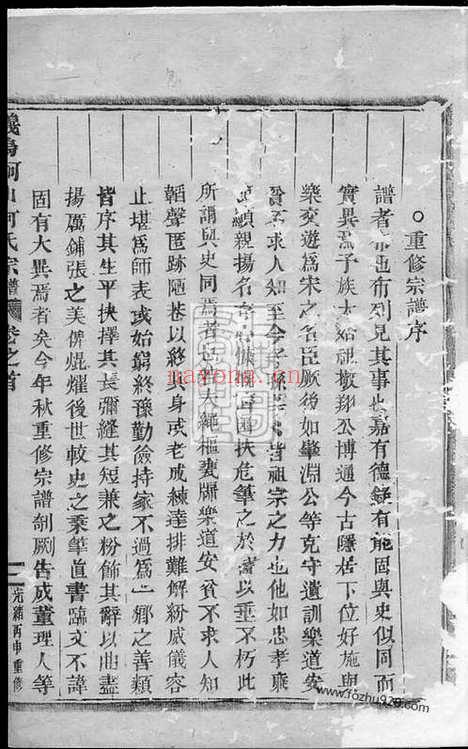 重修宗譜序
譜者布也布列見其事也嘉有德錄有能固與史似同而
實異焉子族太始祖敬翔公博通今古隱居下位好施與
樂交遊為宋之名臣厥後如肇淵公等克守遺訓樂道安
貧不求人知至今子孫皆祖宗之力也他如忠孝兼
顯親揚名扶危筆之於譜以垂不朽此
所謂與史同焉者也若夫繩樞甕牖樂道安貧不求人知
韜聲匿跡陋巷以終其身或老成練達排難解紛威儀容
止堪為師表或始窮終豫勤儉持家不過為一鄉之善類
皆序其生平抉擇其長彌縫其短兼之粉飾其辭以曲盡
揚厲鋪張之美俾焜燿後世較史之秉筆直書臨文不諱
固有大異焉者矣今年秋重修宗譜剞劂告成董理人等
義烏河山何氏宗譜 卷之首
一 光緒丙申重修
www.fozhu920.com